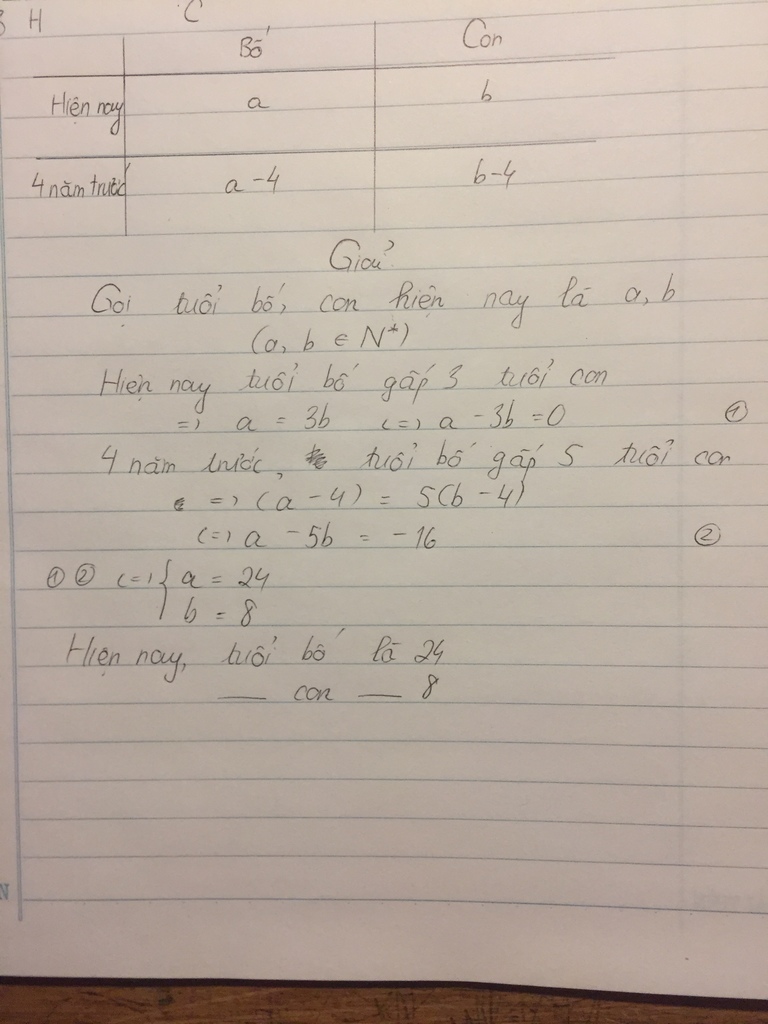 H C
Bố Con
Hiện nay a b
4 năm trước a - 4 b - 4
Giải
Gọi tuổi bố, con hiện nay là a, b
(a, b ∈ N*)
Hiện nay tuổi bố gấp 3 tuổi con
=> a = 3b <=> a - 3b = 0 ①
4 năm trước, tuổi bố gấp 5 tuổi con
=> (a - 4) = 5(b - 4)
<=> a - 5b = -16 ②
① ② <=> { a = 24
b = 8
Hiện nay, tuổi bố là 24
— con — 8
N